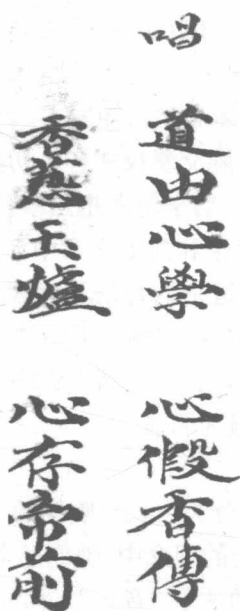 唱 道由心學 心假香傳
香爇玉爐 心存帝前